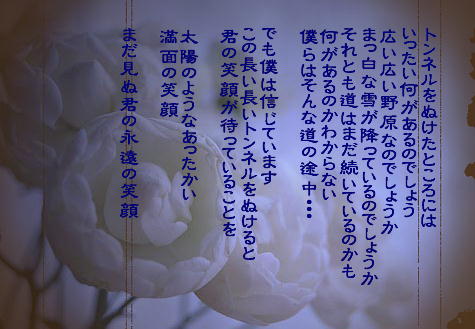 トンネルをぬけたところには
いったい何があるのでしょう
広い広い野原なのでしょうか
まっ白な雪が降っているのでしょうか
それとも道はまだ続いているのかも
何があるのかわからない
僕らはそんな道の途中・・・
でも僕は信じています
この長い長いトンネルをぬけると
君の笑顔が待っていることを
太陽のようなあったかい
満面の笑顔
まだ見ぬ君の永遠の笑顔